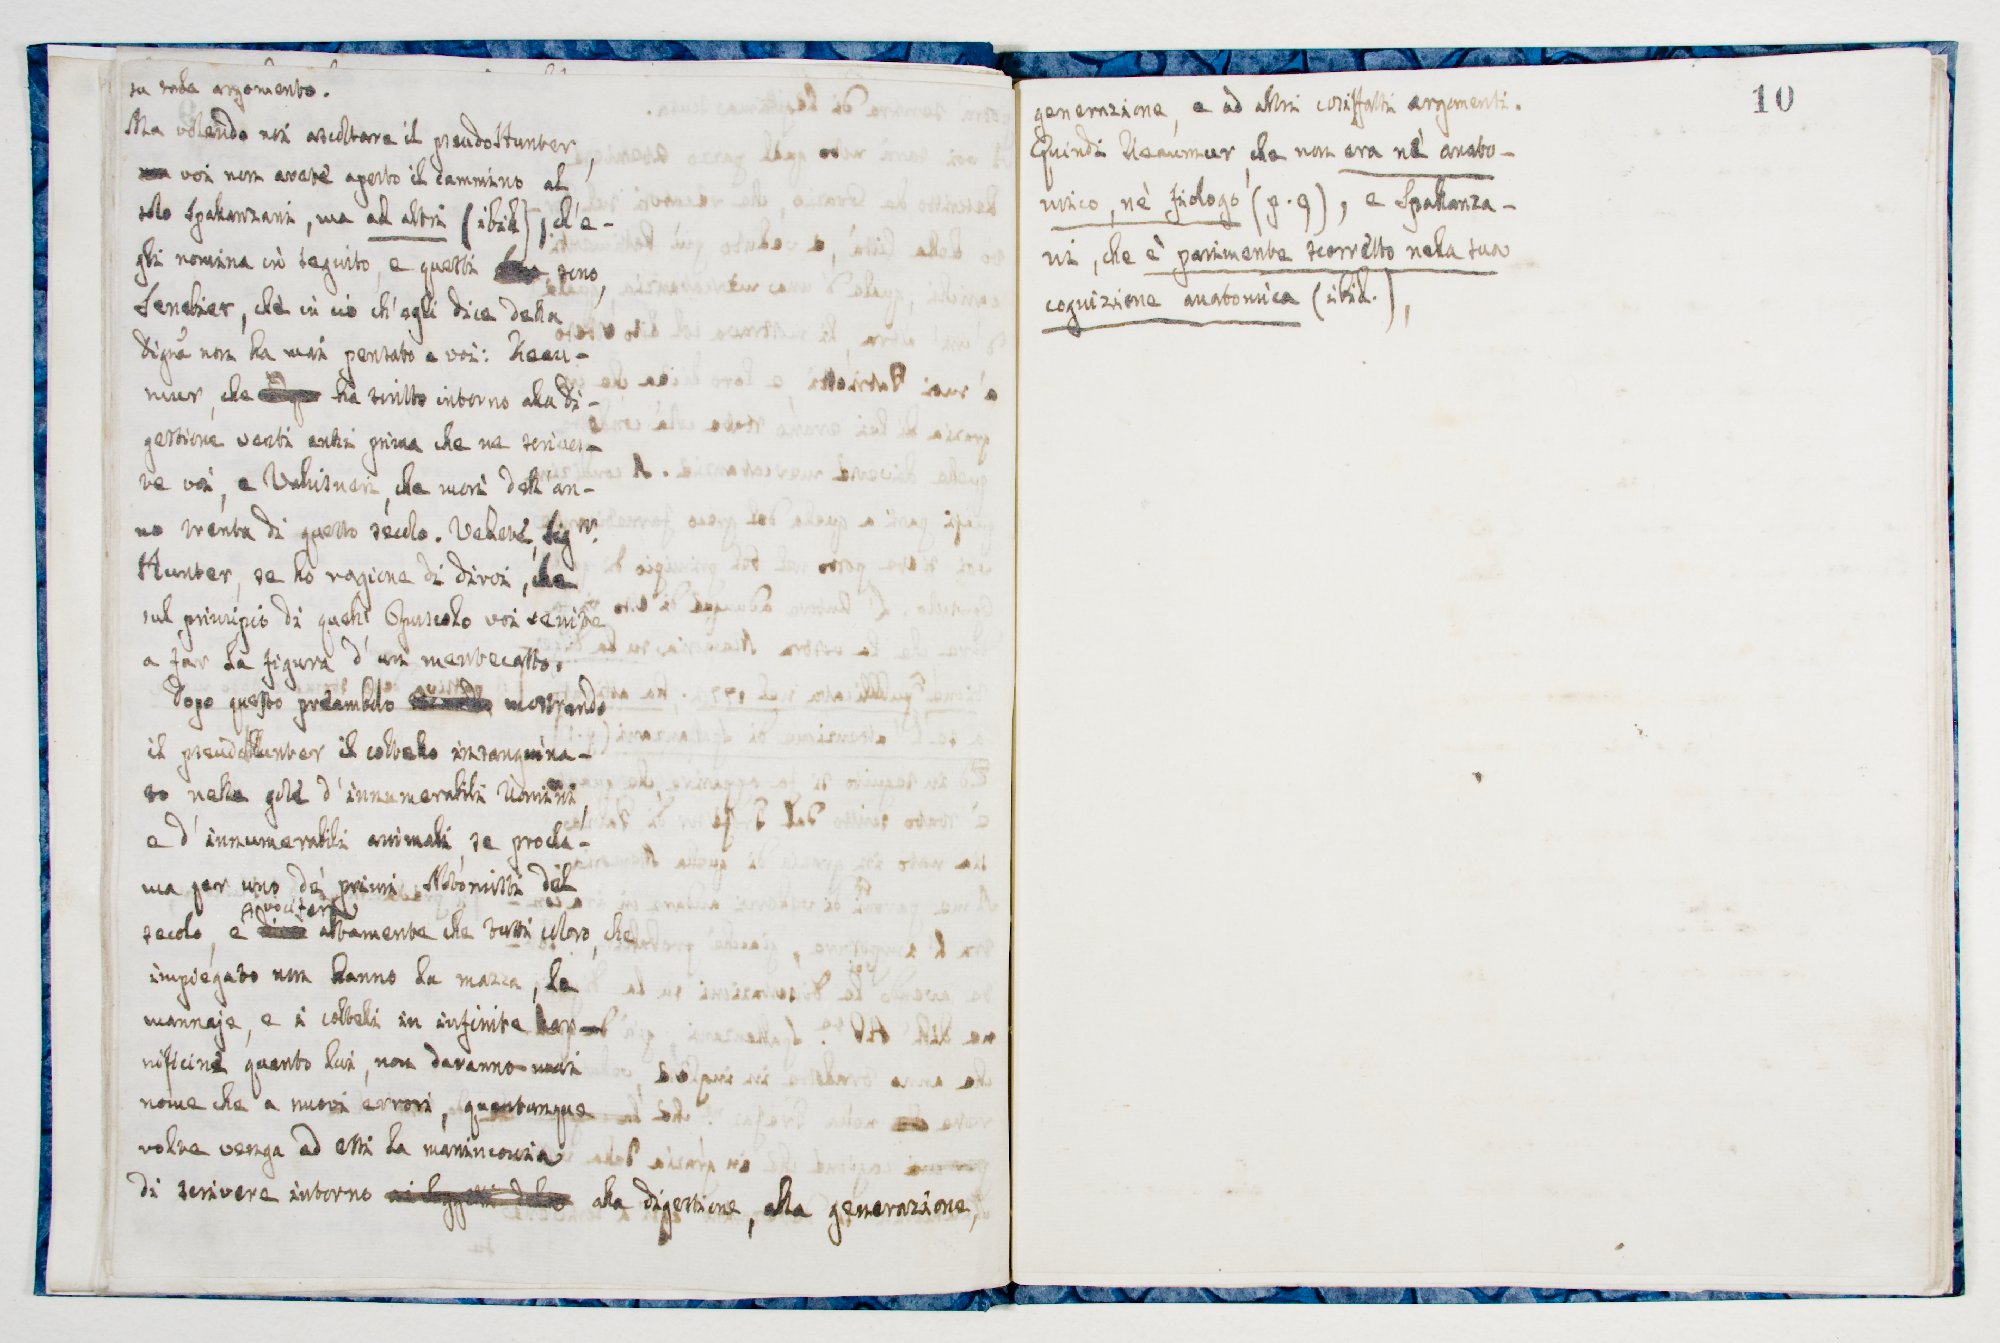 su tale argomento.
Ma volendo noi ascoltare il pseudoHunter,
voi non avete aperto il cammino al
solo Spallanzani, ma ad altri (ibid), ch'e-
gli nomina in seguito, e questi sono
Senebier, che in ciò ch'egli dice della
digne non ha mai pensato a voi: Reau-
mur, che ha scritto intorno alla di-
gestione venti anni prima che ne scrives-
te voi, e Vallisneri, che morì dell'an-
no trenta di questo secolo. Vedete, Sigr.
Hunter, se ho ragione di dirvi, che
sul principio di quest'Opuscolo voi venite
a far la figura d'un mentecatto.
Dopo questo preambolo mostrando
il pseudoHunter il coltello insanguina-
to nelle gole d'innumerabili Uomini,
e d'innumerabili animali se procla-
ma per uno de' primi Notomisti del
secolo, e vocifera altamente che tutti coloro, che
impiegato non hanno la mazza, le
mannaje, e i coltelli in infinite car-
nificine quanto lui, non daranno mai
nome che a nuovi errori, quantunque
volte venga ad essi la maninconia
di scrivere intorno alla digestione, alla generazione,
10
generazione, e ad altri cosiffatti argomenti.
Quindi Reaumur che non era nè anato-
mico, nè fiologo (p. 9), e Spallanza-
ni, che è parimente scorretto nella sua
cognizione anatomica (ibid.),